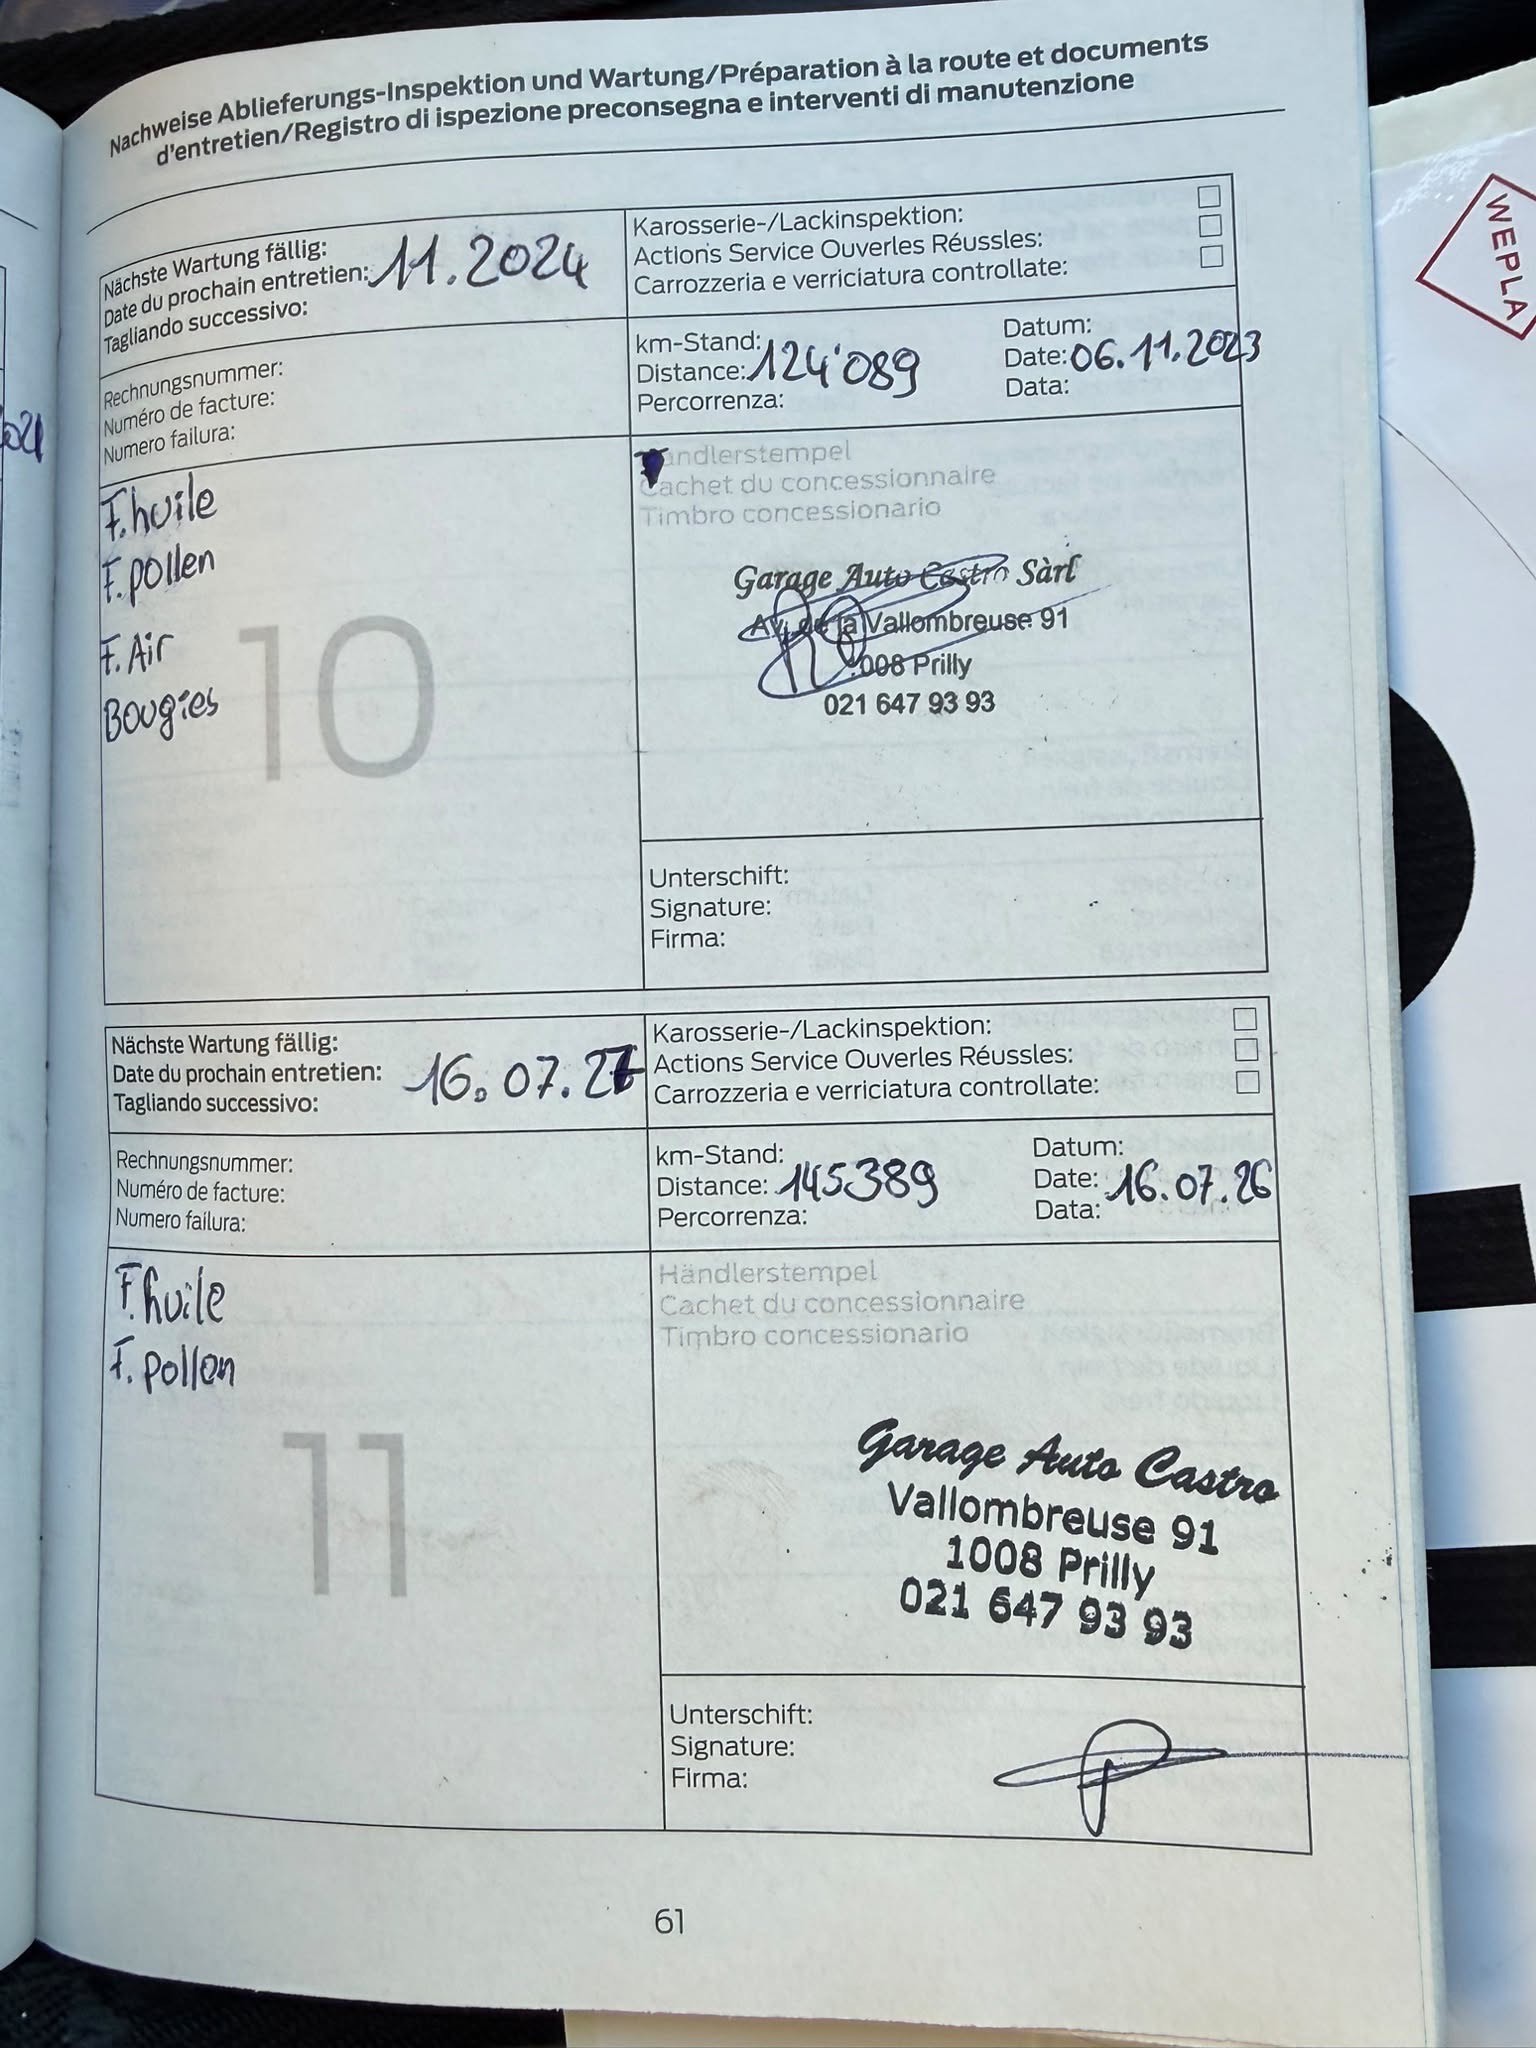 Nachweise Ablieferungs-Inspektion und Wartung/Préparation à la route et documents
d'entretien/Registro di ispezione preconsegna e interventi di manutenzione
Nächste Wartung fällig:
Date du prochain entretien: 11.2024
Tagliando successivo:
Karosserie-/Lackinspektion:
Actions Service Ouverles Réussles:
Carrozzeria e verriciatura controllate:
Rechnungsnummer:
Numéro de facture:
Numero failura:
km-Stand:
Distance: 124'089
Percorrenza:
Datum:
Date: 06.11.2023
Data:
F.huile
F.pollen
F.Air
Bougies
10
ändlerstempel
Cachet du concessionnaire
Timbro concessionario
Garage Auto Castro Sàrl
Av. de la Vallombreuse 91
1008 Prilly
021 647 93 93
Unterschift:
Signature:
Firma:
Nächste Wartung fällig:
Date du prochain entretien: 16.07.27
Tagliando successivo:
Karosserie-/Lackinspektion:
Actions Service Ouverles Réussles:
Carrozzeria e verriciatura controllate:
Rechnungsnummer:
Numéro de facture:
Numero failura:
km-Stand:
Distance: 145389
Percorrenza:
Datum:
Date: 16.07.26
Data:
F.huile
F.pollen
11
Händlerstempel
Cachet du concessionnaire
Timbro concessionario
Garage Auto Castro
Vallombreuse 91
1008 Prilly
021 647 93 93
Unterschift:
Signature:
Firma:
61
WEPLA